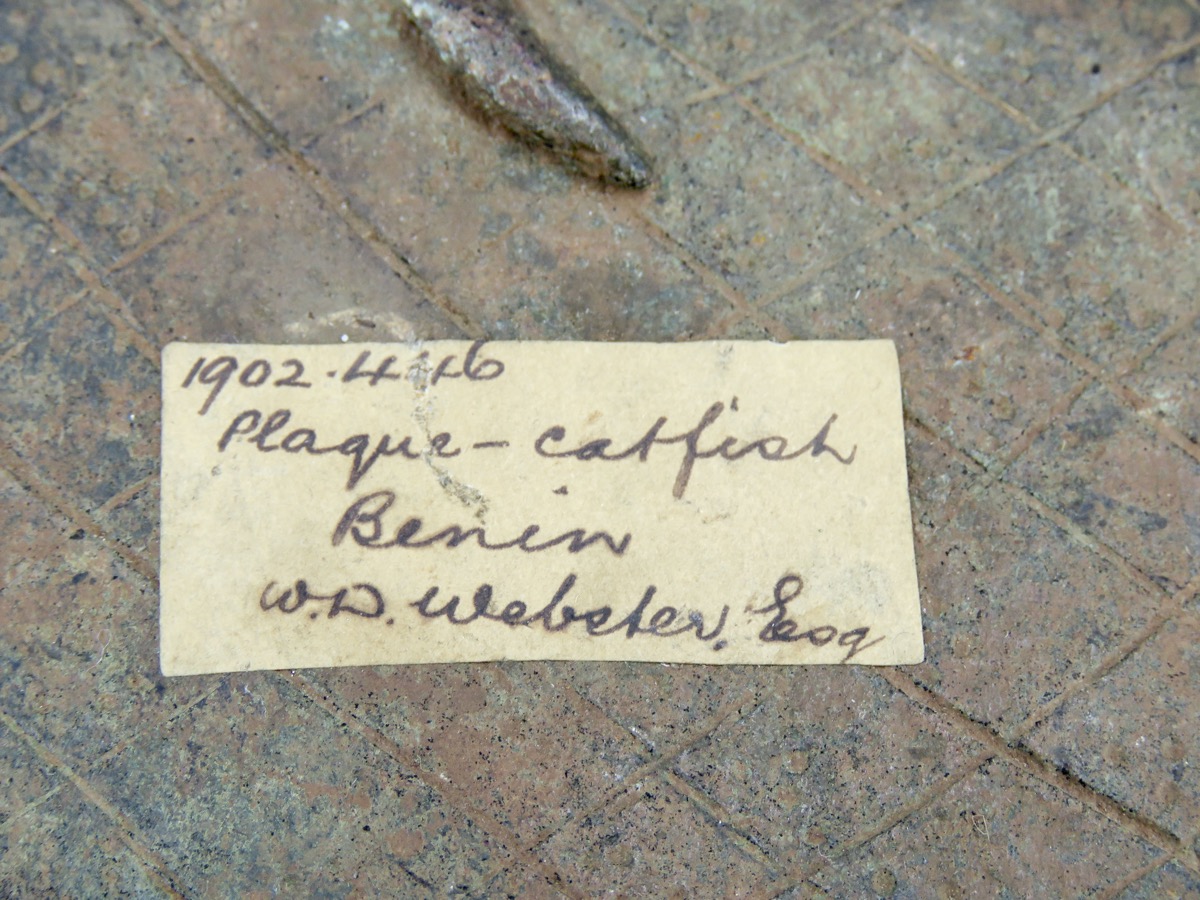 1902·4·46
Plaque – catfish
Benin
W.D. Webster, Esq